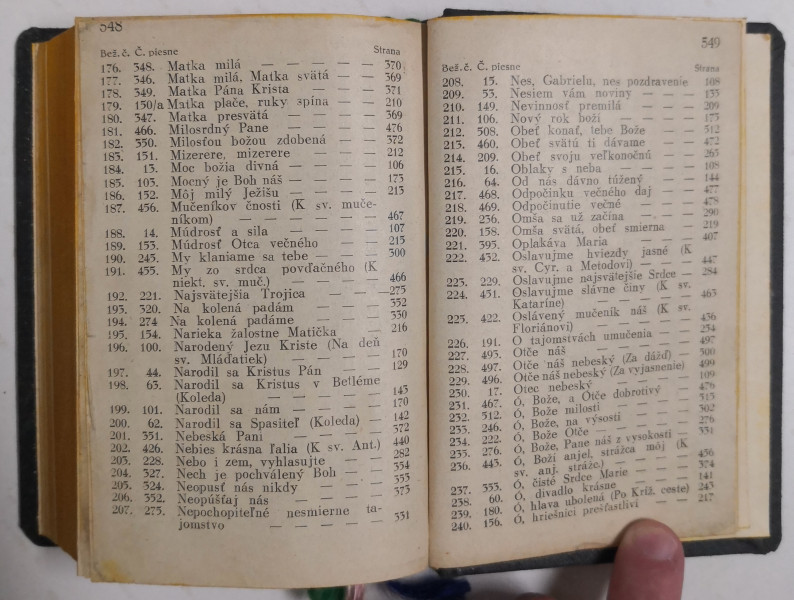 548
Bež. č. Č. piesne Strana
176. 348. Matka milá — — — — — 370
177. 346. Matka milá, Matka svätá — — 369
178. 349. Matka Pána Krista — — — 371
179. 150/a Matka plače, ruky spína — — 210
180. 347. Matka presvätá — — — — 369
181. 466. Milosrdný Pane — — — — 476
182. 350. Milosťou božou zdobená — — 372
183. 151. Mizerere, mizerere — — — 212
184. 13. Moc božia divná — — — — 106
185. 103. Mocný je Boh náš — — — — 173
186. 152. Môj milý Ježišu — — — — 213
187. 456. Mučeníkov čnosti (K sv. muče-
níkom) — — — — — — 467
188. 14. Múdrosť a sila — — — — 107
189. 153. Múdrosť Otca večného — — — 215
190. 245. My klaniame sa tebe — — — 300
191. 455. My zo srdca povďačného (K
niekt. sv. muč.) — — — — 466
192. 221. Najsvätejšia Trojica — — — 275
193. 320. Na kolená padám — — — — 352
194. 274 Na kolená padáme — — — — 330
195. 154. Narieka žalostne Matička — — 216
196. 100. Narodený Jezu Kriste (Na deň
sv. Mláďatiek) — — — — 170
197. 44. Narodil sa Kristus Pán 129
198. 63. Narodil sa Kristus v Betléme
(Koleda) — — — — — 143
199. 101. Narodil sa nám — — — — 170
200. 62. Narodil sa Spasiteľ (Koleda) — 142
201. 351. Nebeská Pani — — — — 372
202. 426. Nebies krásna ľalia (K sv. Ant.) 440
203. 228. Nebo i zem, vyhlasujte — — 282
204. 327. Nech je pochválený Boh — — 354
205. 324. Neopusť nás nikdy — — — 353
206. 352. Neopúšťaj nás — — — — 373
207. 275. Nepochopiteľné nesmierne ta-
jomstvo — — — — — 331
549
Bež. č. Č. piesne Strana
208. 15. Nes, Gabrielu, nes pozdravenie 108
209. 53. Nesiem vám noviny — — — 135
210. 149. Nevinnosť premilá — — — 209
211. 106. Nový rok boží — — — — 175
212. 508. Obeť konať, tebe Bože — — 512
213. 460. Obeť svätú ti dávame — — 472
214. 209. Obeť svoju veľkonočnú — — 265
215. 16. Oblaky s neba — — — — 108
216. 64. Od nás dávno túžený — — — 144
217. 468. Odpočinku večného daj — — 477
218. 469. Odpočinutie večné — — — 478
219. 236. Omša sa už začína — — — 290
220. 158. Omša svätá, obeť smierna — — 219
221. 395. Oplakáva Maria — — — — 407
222. 432. Oslavujme hviezdy jasné (K
sv. Cyr. a Metodovi) — — — 447
223. 229. Oslavujme najsvätejšie Srdce — 284
224. 451. Oslavujme slávne činy (K sv.
Kataríne) — — — — — 463
225. 422. Oslávený mučeník náš (K sv.
Floriánovi) — — — — — 436
226. 191. O tajomstvách umučenia — — 254
227. 493. Otče náš — — — — — 497
228. 497. Otče náš nebeský (Za dážď) — 500
229. 496. Otče náš nebeský (Za vyjasnenie) 499
230. 17. Otec nebeský — — — — 109
231. 467. Ó, Bože, a Otče dobrotivý — 476
232. 512. Ó, Bože milosti — — — — 515
233. 246. Ó, Bože, na výsosti — — — 302
234. 222. Ó, Bože Otče — — — — 276
235. 276. Ó, Bože, Pane náš z vysokosti — 331
236. 443. Ó, Boží anjel, strážca môj (K
sv. anj. strážc.) — — — — 456
237. 353. Ó, čisté Srdce Marie — — — 374
238. 60. Ó, divadlo krásne — — — 141
239. 180. Ó, hlava ubolená (Po Kríž. ceste) 243
240. 156. Ó, hriešnici prešťastliví — — 217